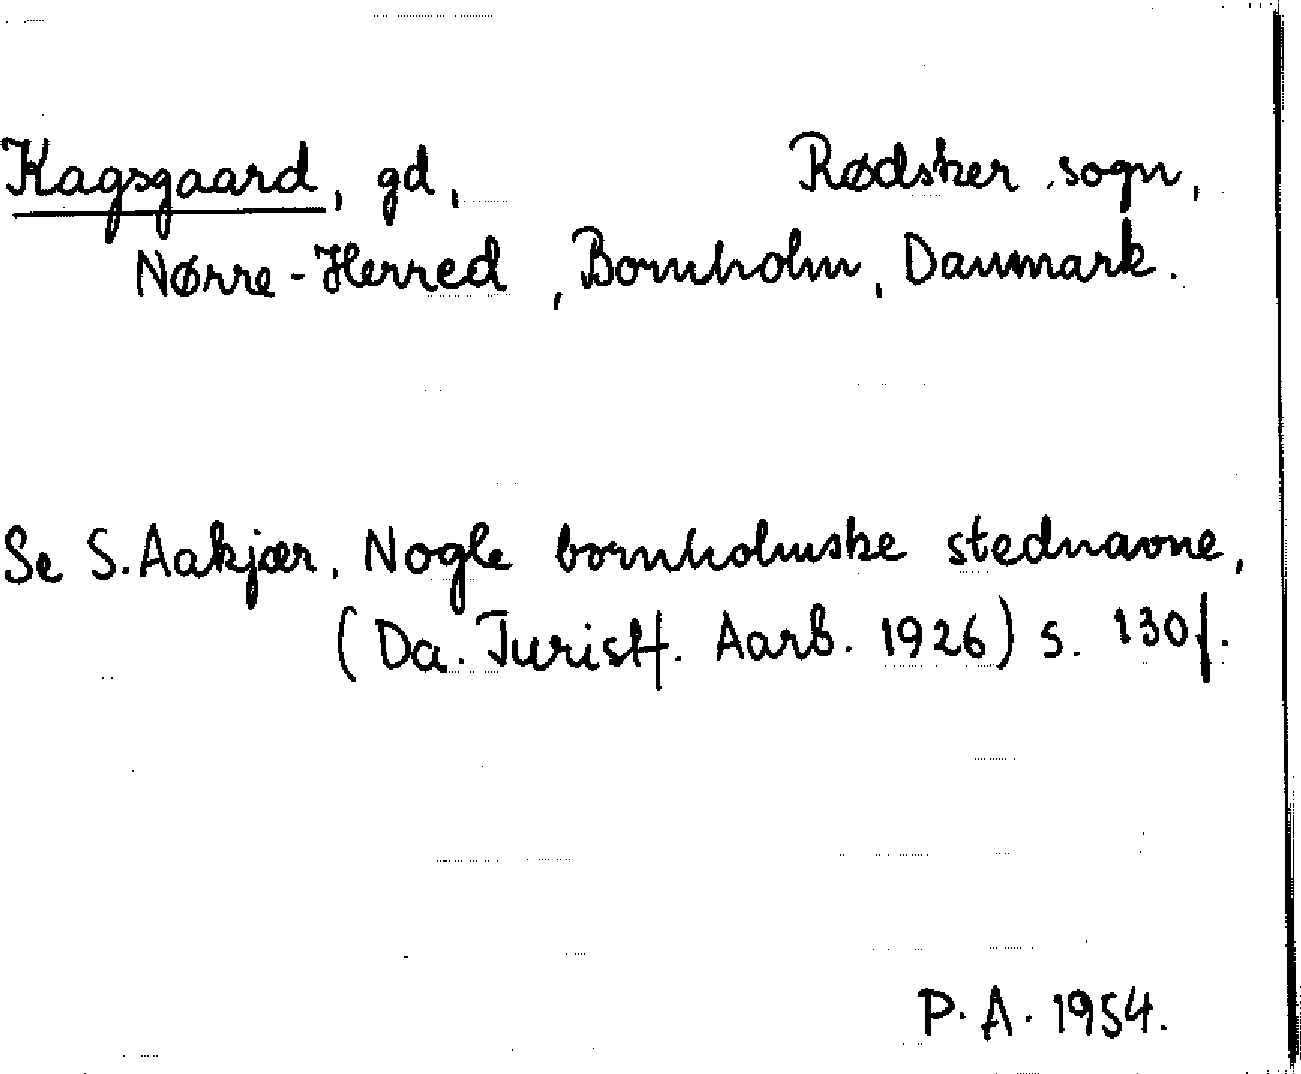 Kagsgaard, gd, Rødsker sogn,
Nørre-Herred, Bornholm, Danmark.
Se S. Aakjær, Nogle bornholmske stednavne,
(Da. Turistf. Aarb. 1926) s. 130f.
P. A. 1954.